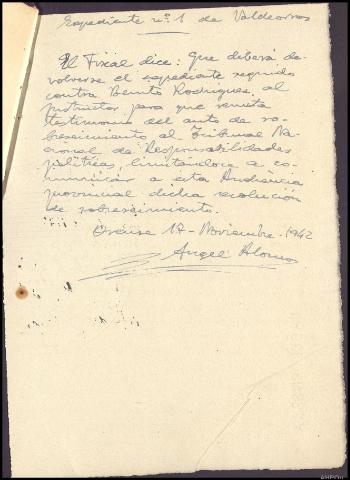 Expediente nº 1 de Valdeorras
El Fiscal dice: Que deberá de-
volverse el expediente seguido
contra Benito Rodriguez, al
Instructor para que remita
testimonio del auto de so-
breseimiento al Tribunal Na-
cional de Responsabilidades
politicas, limitándose a co-
municar a esta Audiencia
provincial dicha resolución
de sobreseimiento.
Orense 17 - Noviembre - 1942
Angel Alonso